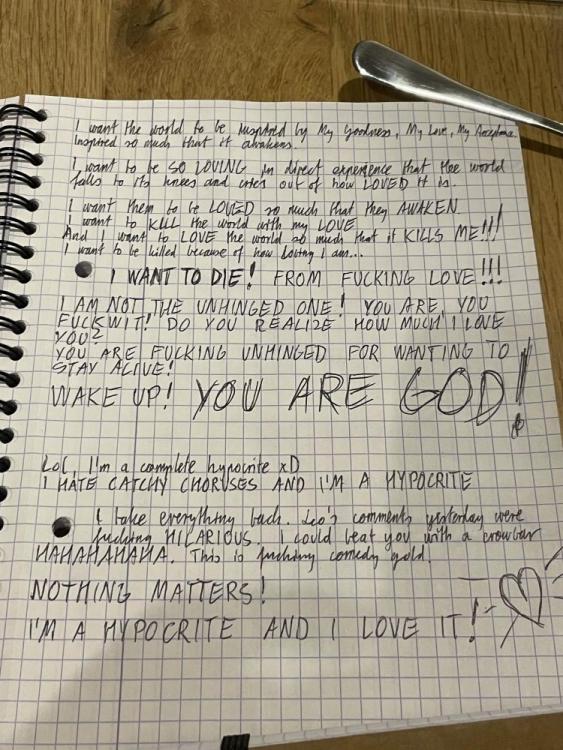 I want the world to be inspired by My Goodness, My Love, My Acceptance.
Inspired so much that it awakens.
I want to be SO LOVING in direct experience that the world
falls to its knees and cries out of how LOVED it is.
I want them to be LOVED so much that they AWAKEN.
I want to KILL the world with my LOVE
And I want to LOVE the world so much that it KILLS ME!!!
I want to be killed because of how loving I am...
I WANT TO DIE! FROM FUCKING LOVE!!!
I AM NOT THE UNHINGED ONE! YOU ARE, YOU
FUCKWIT! DO YOU REALIZE HOW MUCH I LOVE
YOU?
YOU ARE FUCKING UNHINGED FOR WANTING TO
STAY ALIVE!
WAKE UP! YOU ARE GOD!
Lol, I'm a complete hypocrite xD
I HATE CATCHY CHORUSES AND I'M A HYPOCRITE
I take everything back. Leo's comments yesterday were
fucking HILARIOUS. I could beat you with a crowbar
HAHAHAHAHA. This is fucking comedy gold!
NOTHING MATTERS!
I'M A HYPOCRITE AND I LOVE IT!